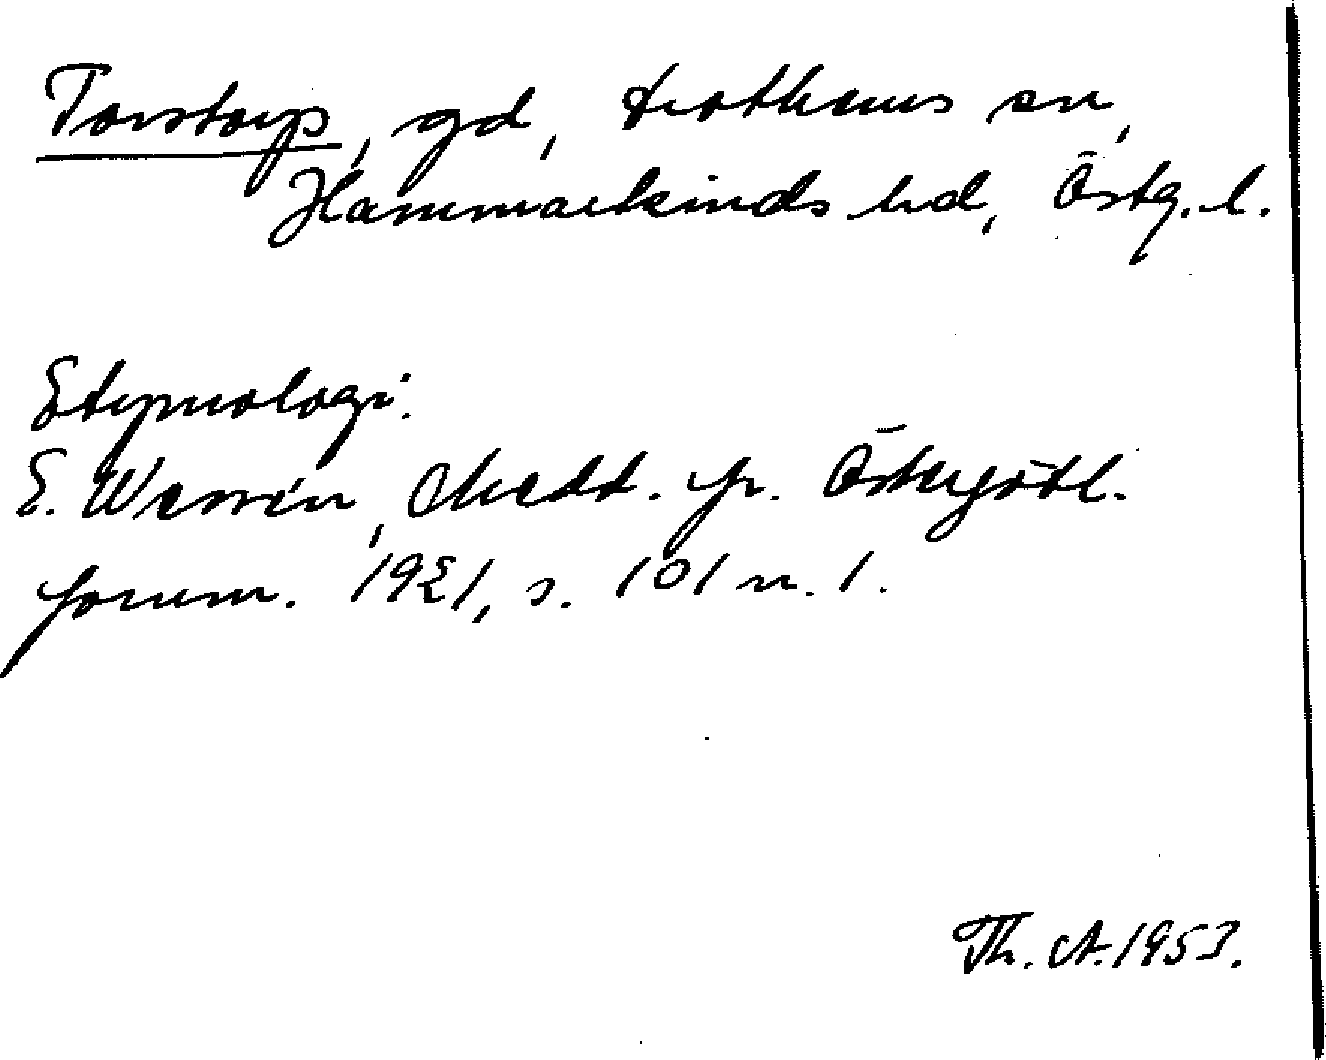 Torstorp, gd, Drothems sn,
Hammarkinds hd, Östg. l.
Etymologi:
E. Wessén, Medd. fr. Östergötl.
fornm. 1921, s. 101 n. 1.
Th. A. 1953.